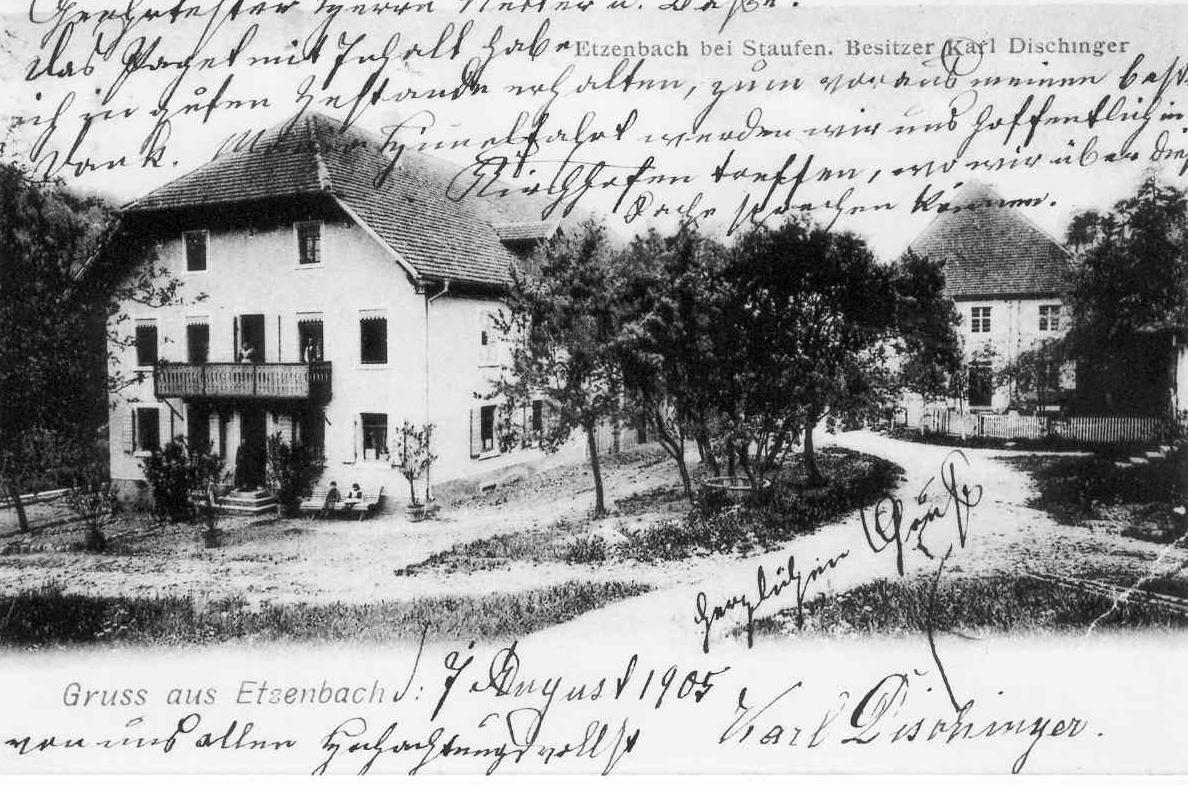 Geehrtester Herrn Vetter u. Base.
Das Paget mit Inhalt habe
Etzenbach bei Staufen. Besitzer Karl Dischinger
ich in gutem Zustande erhalten, zum voraus meinen best
Dank. Maria Himelfahrt werden wir uns hoffentlich in
Kirchhofen treffen, wo wir über die
Sache sprechen können.
Herzlichen Gruß
Gruss aus Etzenbach d: 7 August 1905
von uns allen Hochachtungsvollst Karl Dischinger.